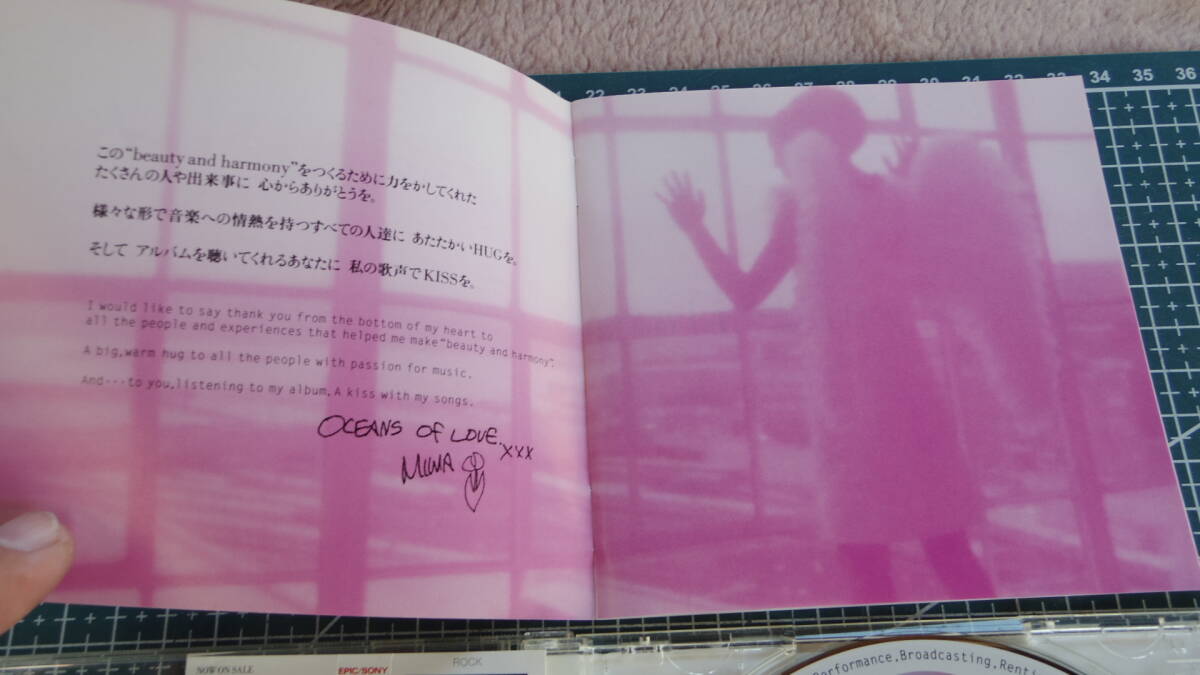 この"beauty and harmony"をつくるために力をかしてくれた
たくさんの人や出来事に 心からありがとうを。
様々な形で音楽への情熱を持つすべての人達に あたたかいHUGを。
そして アルバムを聴いてくれるあなたに 私の歌声でKISSを。
I would like to say thank you from the bottom of my heart to
all the people and experiences that helped me make "beauty and harmony".
A big,warm hug to all the people with passion for music.
And···to you,listening to my album,A kiss with my songs.
OCEANS OF LOVE. XXX
MIWA
22 23 24 25 26 27 28 29 30 31 32 33 34 35 36
NOW ON SALE
EPIC/SONY
ROCK
Performance,Broadcasting,Renti